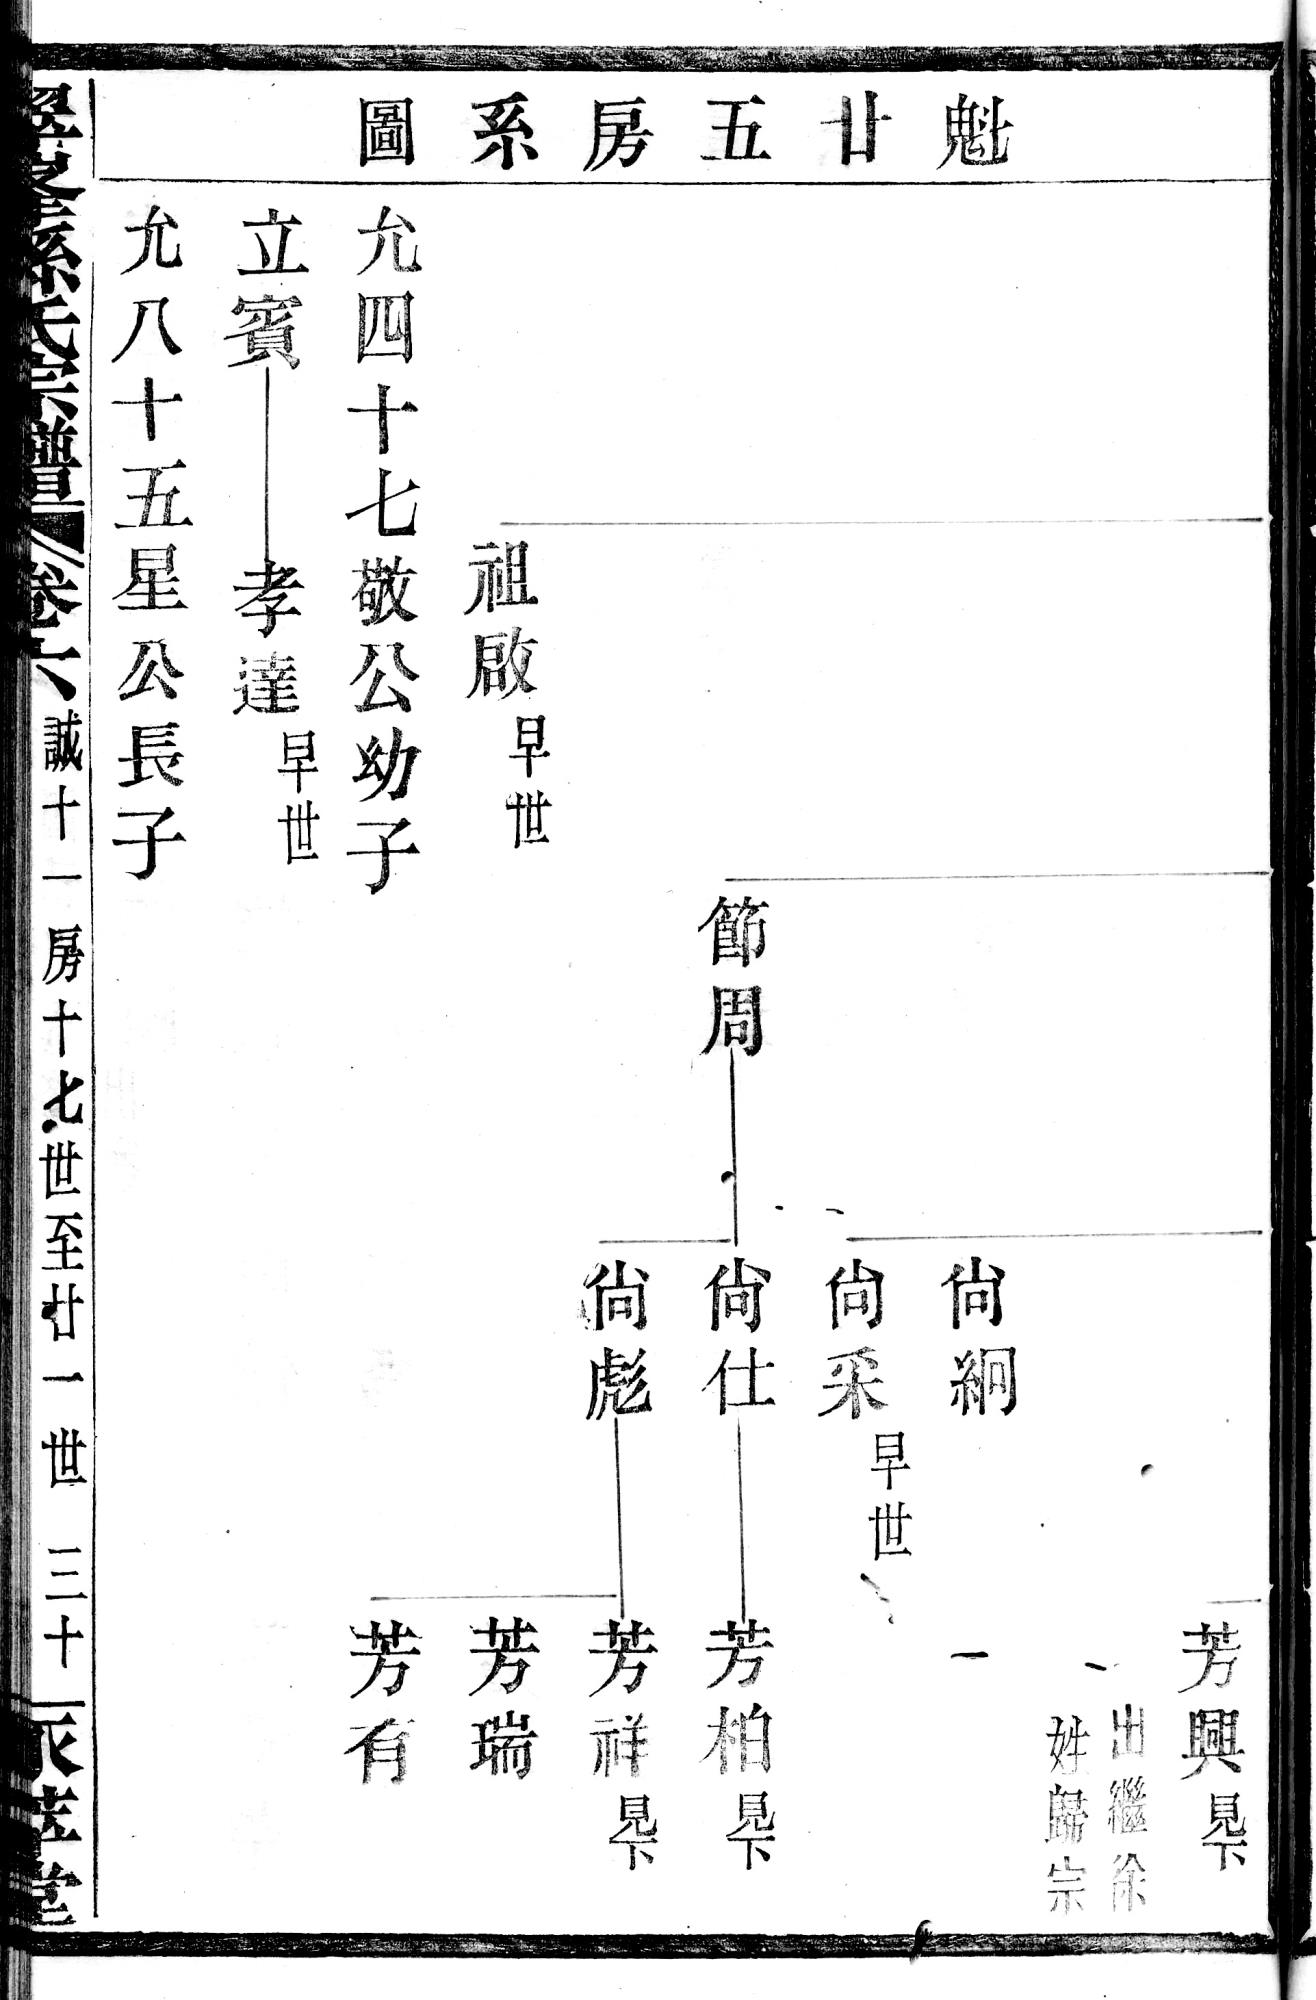 魁廿五房系圖
芳興見下
出繼徐
姓歸宗
尙絅
尙采早世
節周
尙仕
芳柏見下
尙彪
芳祥見下
芳瑞
芳有
祖啟早世
允四十七敬公幼子
立賓
孝達早世
允八十五星公長子
孫氏宗譜
卷六
誠十一房十七世至廿一世
三十